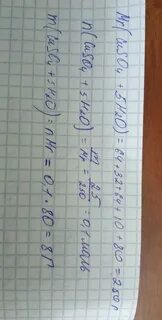 Mr(CuSO4 + 5H2O) = 64+32+64+10+80 = 250 г
n(CuSO4 + 5H2O) = m/Mr = 25/250 = 0,1 моль
m(CuSO4 + 5H2O) = nMr = 0,1 · 80 = 8 г